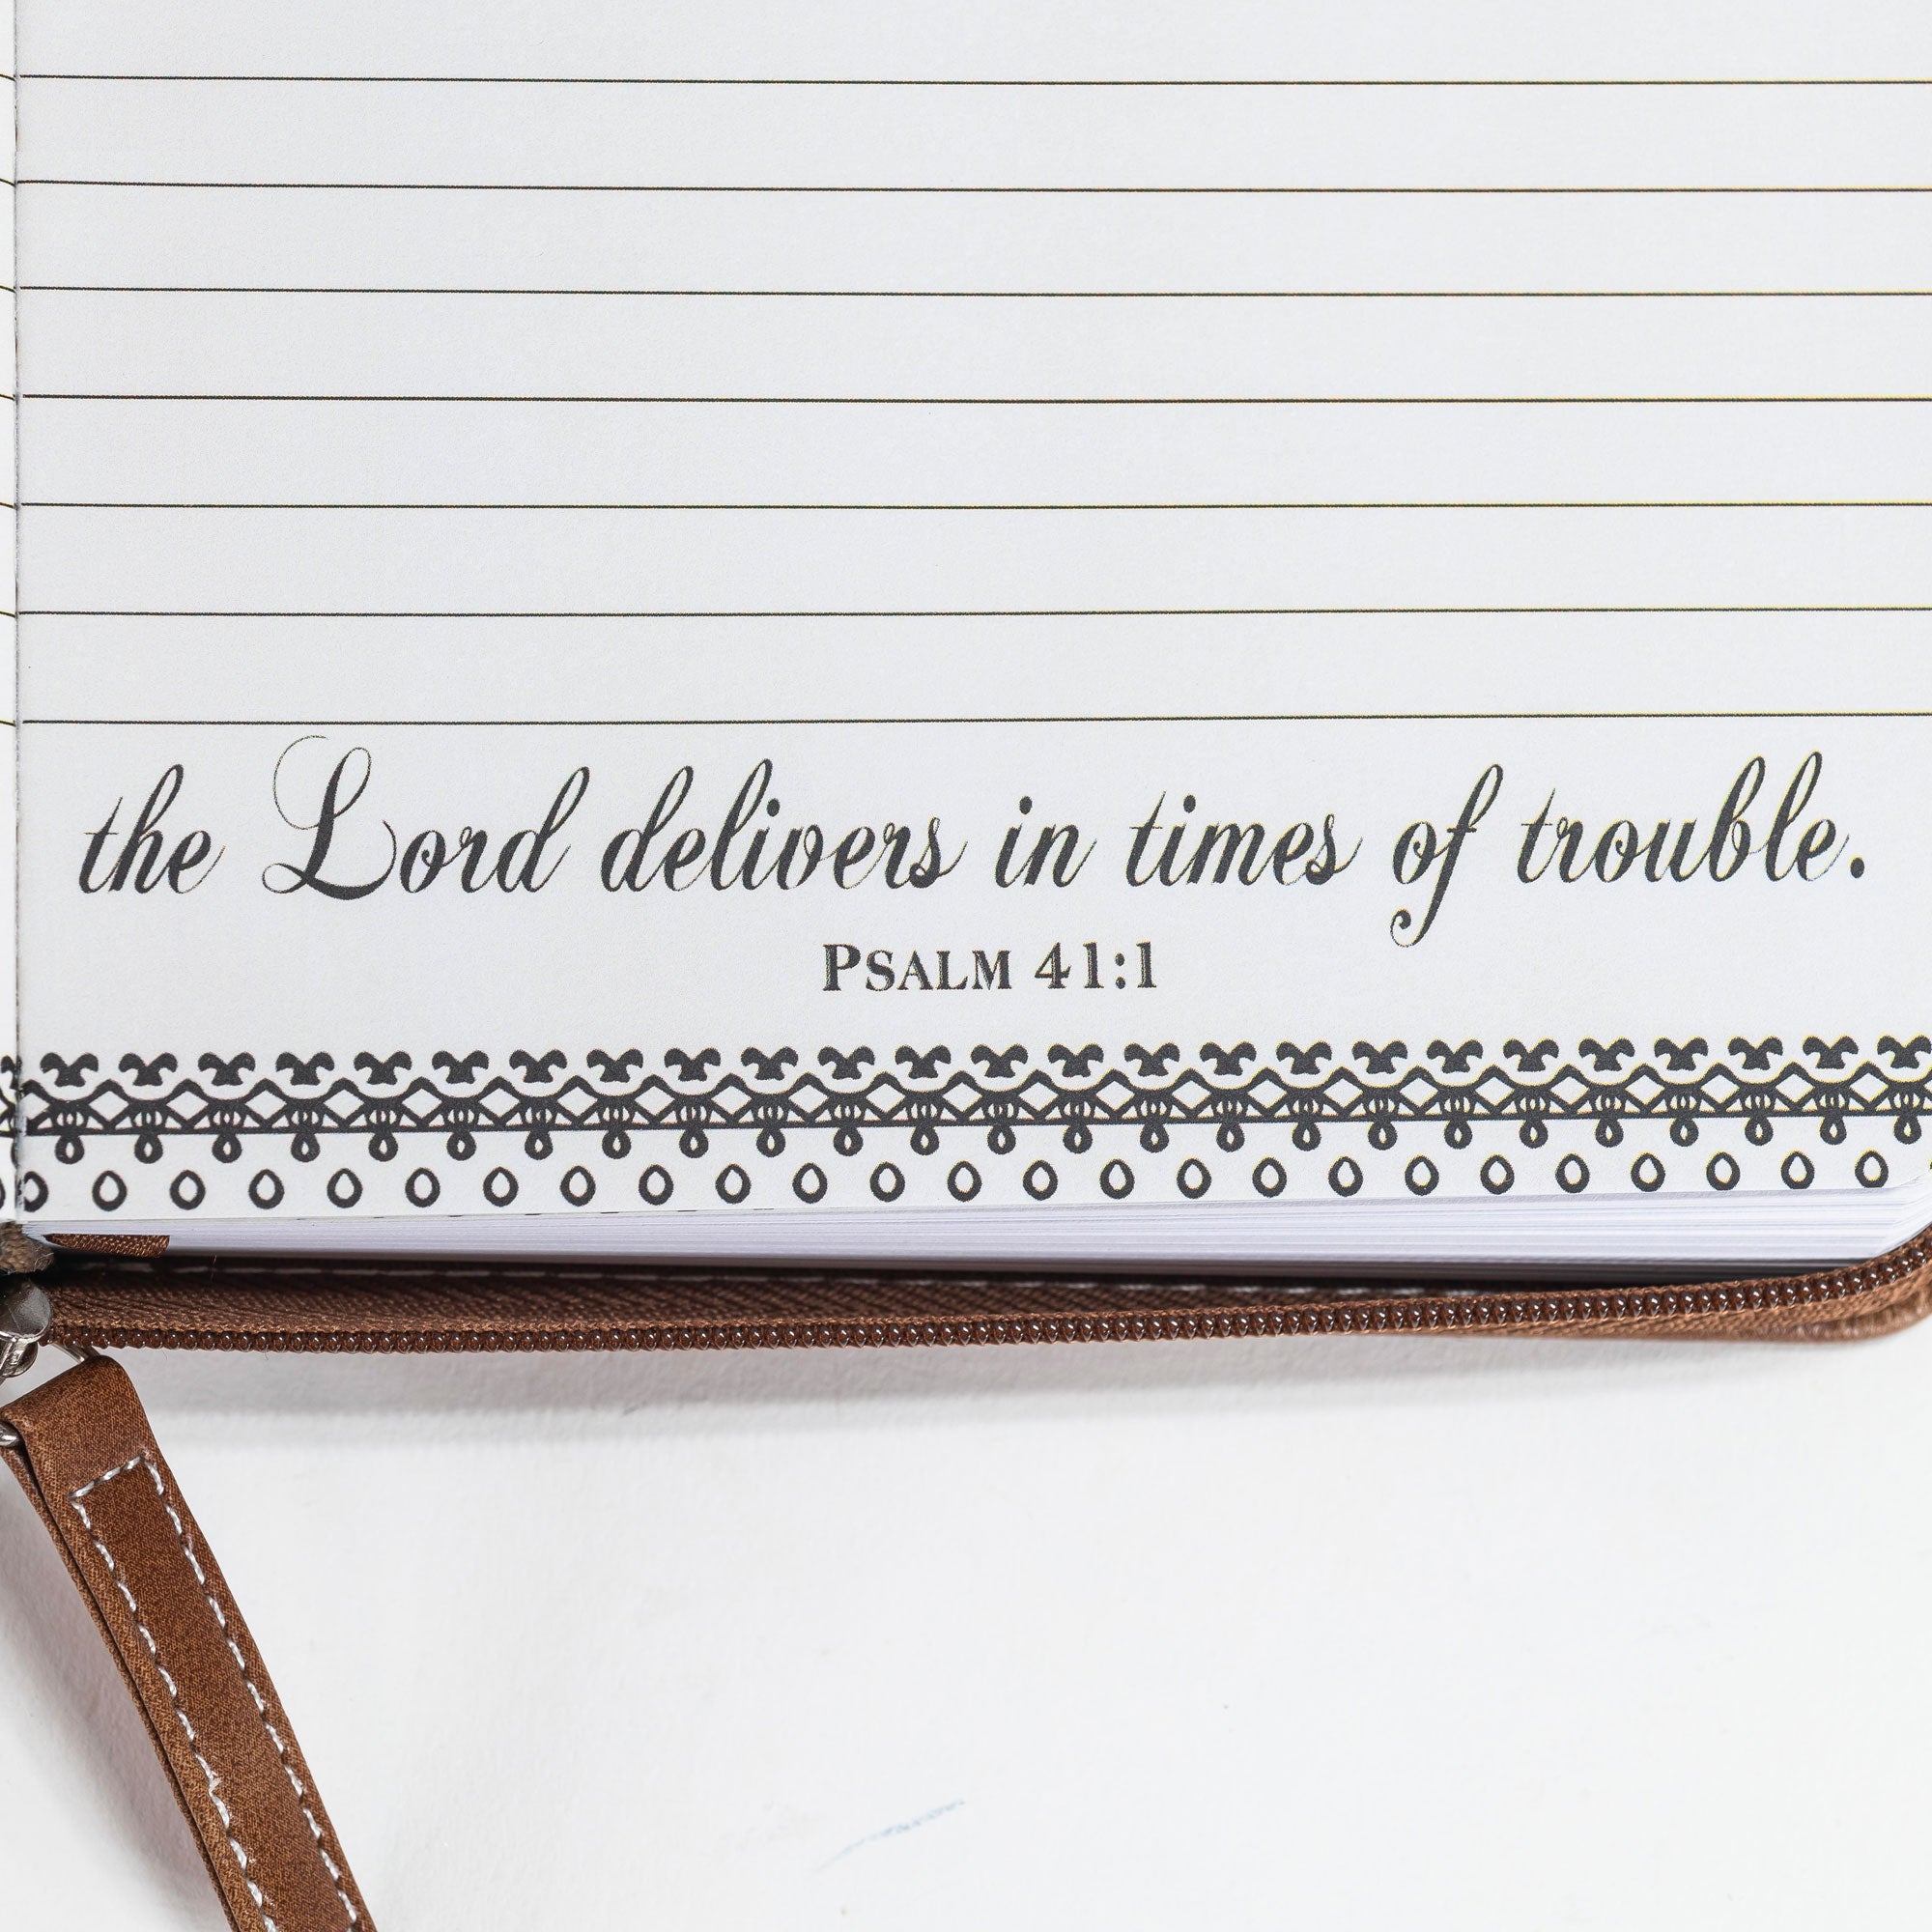 the Lord delivers in times of trouble.
PSALM 41:1